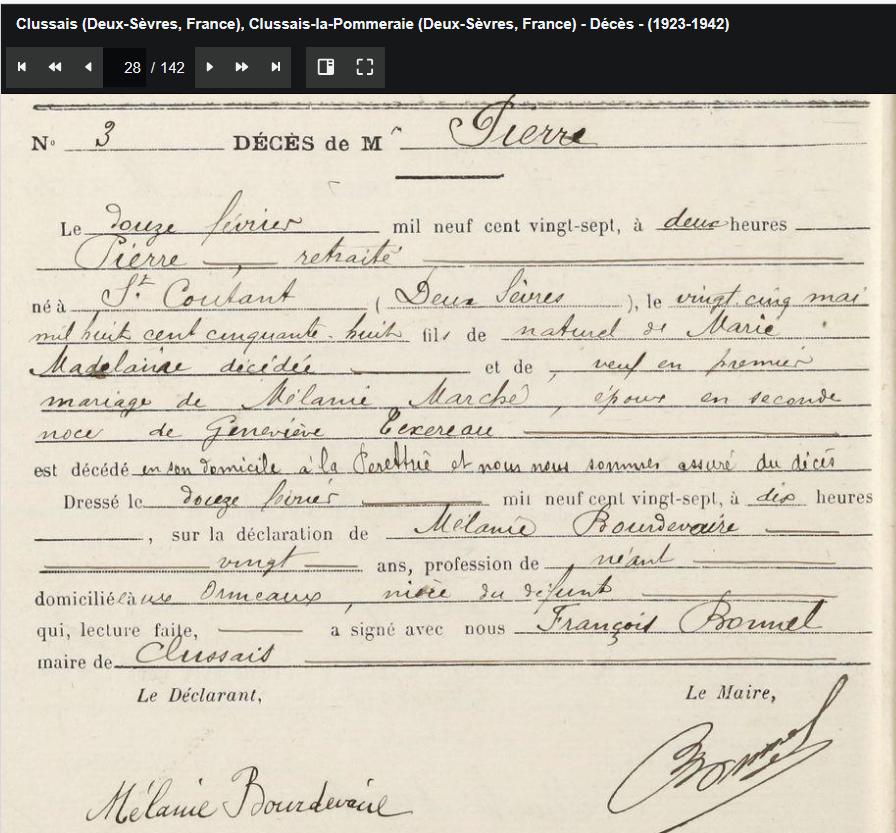 Clussais (Deux-Sèvres, France), Clussais-la-Pommeraie (Deux-Sèvres, France) - Décès - (1923-1942)
28 / 142
N° 3 DÉCÈS de Mr Pierre
Le douze février mil neuf cent vingt-sept, à deux heures
Pierre , retraité
né à St Coutant ( Deux Sèvres ), le vingt cinq mai
mil huit cent cinquante-huit fils de naturel de Marie
Madelaine décédée et de , veuf en premier
mariage de Mélanie Marché , époux en seconde
noce de Geneviève Texereau
est décédé en son domicile à la et nous nous sommes assuré du décès
Dressé le douze février mil neuf cent vingt-sept, à dix heures
, sur la déclaration de Mélanie Bourdevaire
vingt ans, profession de néant
domicilié aux Ormeaux , nièce du défunt
qui, lecture faite, a signé avec nous François Bonnet
maire de Clussais
Le Déclarant, Le Maire,
Mélanie Bourdevaire Bonnet